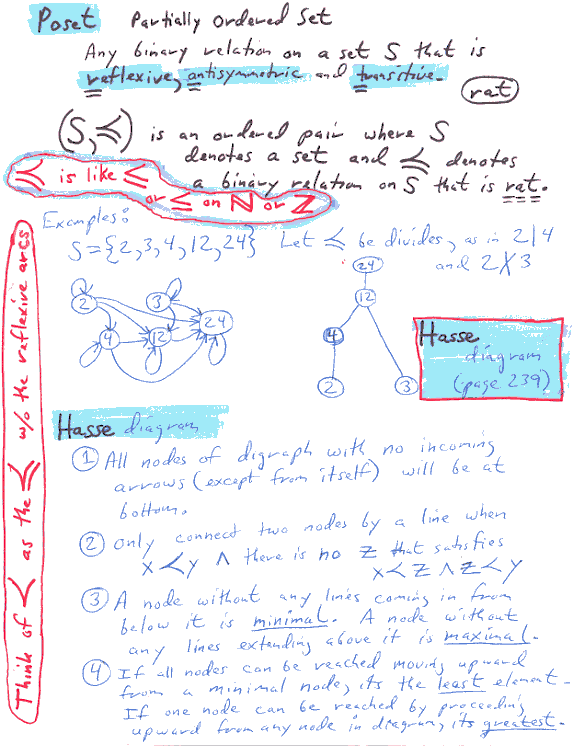 Poset Partially Ordered Set
Any binary relation on a set S that is
reflexive, antisymmetric and transitive.
rat
(S,≼) is an ordered pair where S
denotes a set and ≼ denotes
a binary relation on S that is rat.
≼ is like ≤
or ≤ on ℕ or ℤ
Examples:
S={2,3,4,12,24} Let ≼ be divides, as in 2|4
and 2∤3
2
3
4
12
24
24
12
4
2
3
Hasse
diagram
(page 239)
Think of ≺ as the ≼ w/o the reflexive arcs
Hasse diagram
① All nodes of digraph with no incoming
arrows (except from itself) will be at
bottom.
② Only connect two nodes by a line when
x≺y ∧ there is no z that satisfies
x≺z ∧ z≺y
③ A node without any lines coming in from
below it is minimal. A node without
any lines extending above it is maximal.
④ If all nodes can be reached moving upward
from a minimal node, its the least element.
If one node can be reached by proceeding
upward from any node in diagram, its greatest.